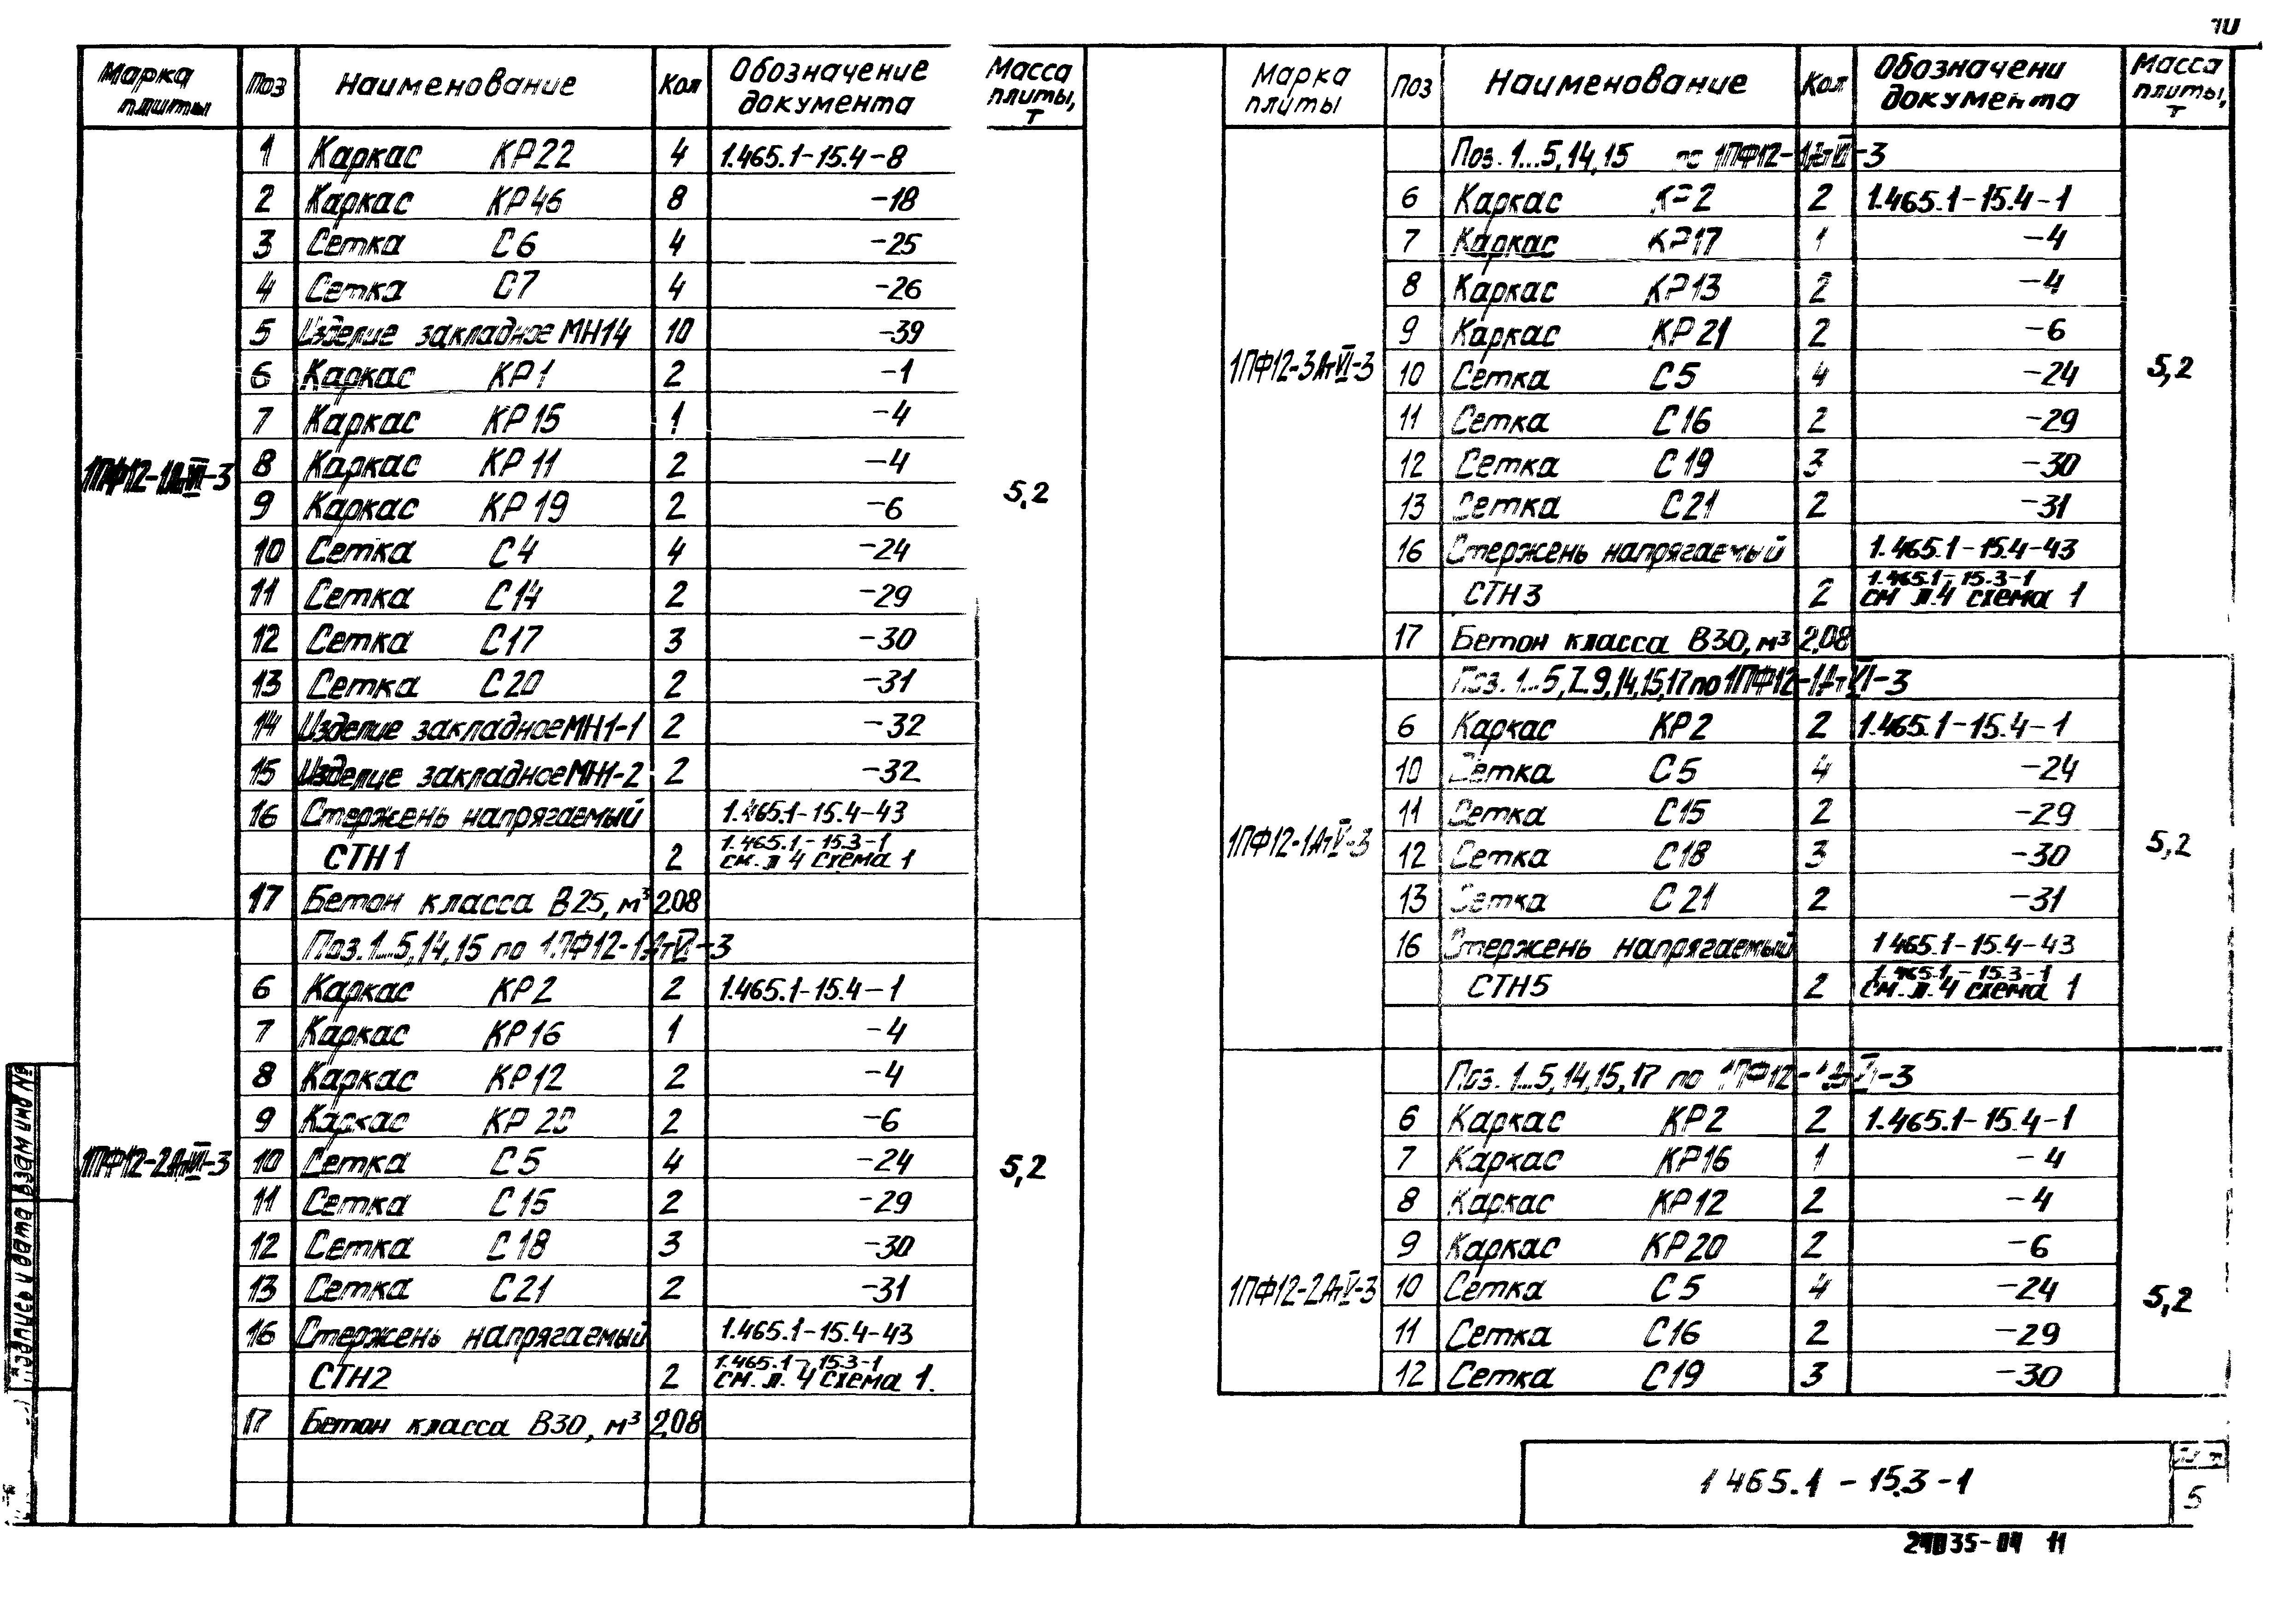 10
Марка плиты Поз Наименование Кол Обозначение документа Масса плиты, т
1 Каркас КР22 4 1.465.1-15.4-8
2 Каркас КР46 8 -18
3 Сетка С6 4 -25
4 Сетка С7 4 -26
5 Изделие закладное МН14 10 -39
6 Каркас КР1 2 -1
7 Каркас КР15 1 -4
1ПФ12-1АтVI-3 8 Каркас КР11 2 -4
9 Каркас КР19 2 -6 5,2
10 Сетка С4 4 -24
11 Сетка С14 2 -29
12 Сетка С17 3 -30
13 Сетка С20 2 -31
14 Изделие закладное МН1-1 2 -32
15 Изделие закладное МН1-2 2 -32
16 Стержень напрягаемый 1.465.1-15.4-43
СТН1 2 1.465.1-15.3-1 см. л 4 схема 1
17 Бетон класса В25, м³ 2,08
Поз. 1...5, 14, 15 по 1ПФ12-1АтVI-3
6 Каркас КР2 2 1.465.1-15.4-1
7 Каркас КР16 1 -4
8 Каркас КР12 2 -4
9 Каркас КР20 2 -6
1ПФ12-2АтVI-3 10 Сетка С5 4 -24 5,2
11 Сетка С15 2 -29
12 Сетка С18 3 -30
13 Сетка С21 2 -31
16 Стержень напрягаемый 1.465.1-15.4-43
СТН2 2 1.465.1-15.3-1 см. л. 4 схема 1.
17 Бетон класса В30, м³ 2,08
Марка плиты Поз Наименование Кол Обозначени документа Масса плиты, т
Поз. 1...5, 14, 15 по 1ПФ12-1АтVI-3
6 Каркас КР2 2 1.465.1-15.4-1
7 Каркас КР17 1 -4
8 Каркас КР13 2 -4
9 Каркас КР21 2 -6
1ПФ12-3АтVI-3 10 Сетка С5 4 -24 5,2
11 Сетка С16 2 -29
12 Сетка С19 3 -30
13 Сетка С21 2 -31
16 Стержень напрягаемый 1.465.1-15.4-43
СТН3 2 1.465.1-15.3-1 см л.4 схема 1
17 Бетон класса В30, м³ 2,08
Поз. 1...5, 7...9, 14, 15, 17 по 1ПФ12-1АтVI-3
6 Каркас КР2 2 1.465.1-15.4-1
10 Сетка С5 4 -24
11 Сетка С15 2 -29
1ПФ12-1АтV-3 12 Сетка С18 3 -30 5,2
13 Сетка С21 2 -31
16 Стержень напрягаемый 1465.1-15.4-43
СТН5 2 1.465.1.-15.3-1 см. л. 4 схема 1
Поз. 1...5, 14, 15, 17 по 1ПФ12-1АтVI-3
6 Каркас КР2 2 1.465.1-15.4-1
7 Каркас КР16 1 -4
8 Каркас КР12 2 -4
9 Каркас КР20 2 -6
1ПФ12-2АтV-3 10 Сетка С5 4 -24 5,2
11 Сетка С16 2 -29
12 Сетка С19 3 -30
1465.1-15.3-1
5
24035-04 11